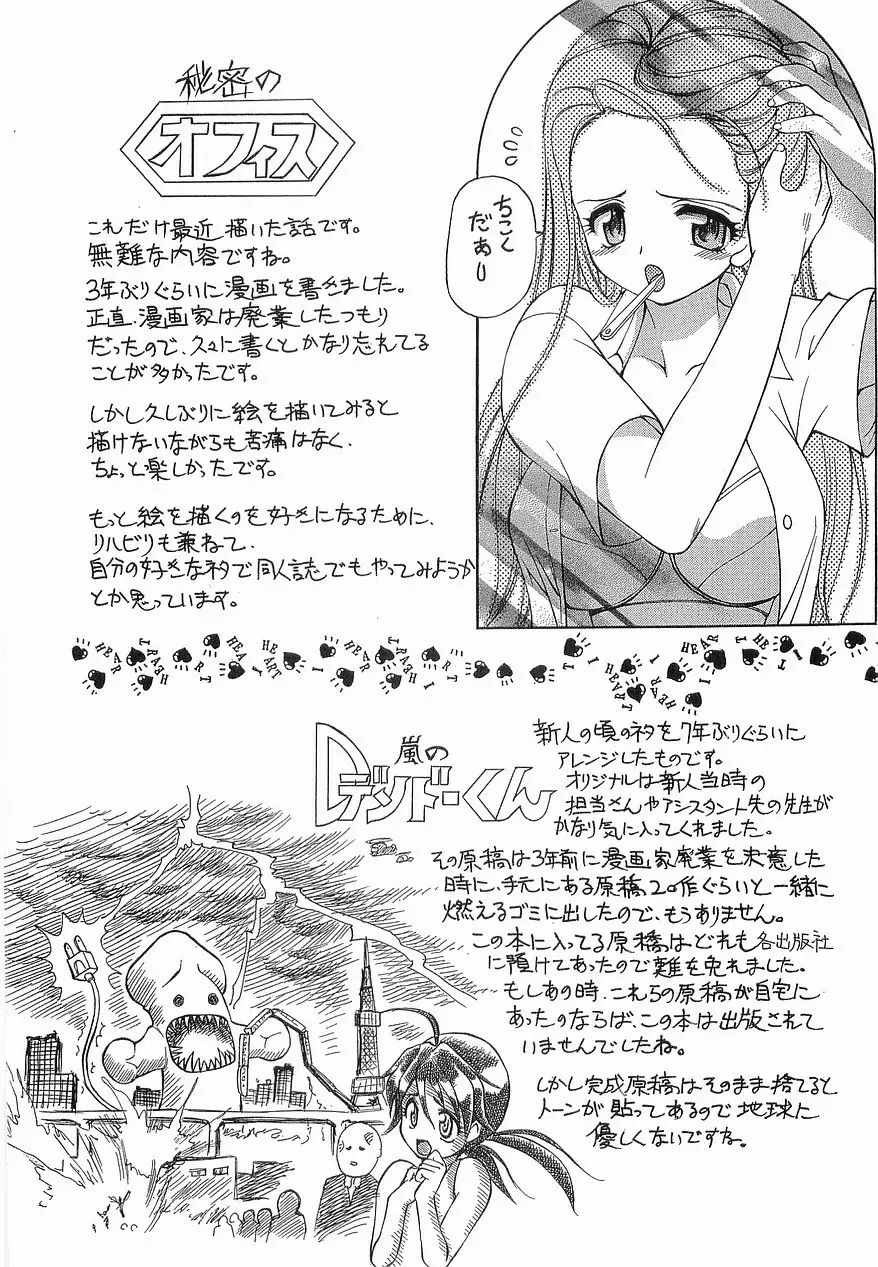 秘密の
オフィス
これだけ最近描いた話です。
無難な内容ですね。
3年ぶりぐらいに漫画を書きました。
正直、漫画家は廃業したつもり
だったので、久々に書くとかなり忘れてる
ことが多かったです。
しかし久しぶりに絵を描いてみると
描けないながらも苦痛はなく、
ちょっと楽しかったです。
もっと絵を描くのを好きになるために、
リハビリも兼ねて、
自分の好きなネタで同人誌でもやってみようか
とか思っています。
ちこく
だぁー
I HEART I HEART I HEART
I HEART I HEART
嵐の
デンドーくん
新人の頃のネタを7年ぶりぐらいに
アレンジしたものです。
オリジナルは新人当時の
担当さんやアシスタント先の先生が
かなり気に入ってくれました。
その原稿は3年前に漫画家廃業を決意した
時に、手元にある原稿20作ぐらいと一緒に
燃えるゴミに出したので、もうありません。
この本に入ってる原稿はどれも各出版社
に預けてあったので難を免れました。
もしあの時、これらの原稿が自宅に
あったのならば、この本は出版されて
いませんでしたね。
しかし完成原稿はそのまま捨てると
トーンが貼ってあるので地球に
優しくないですね。